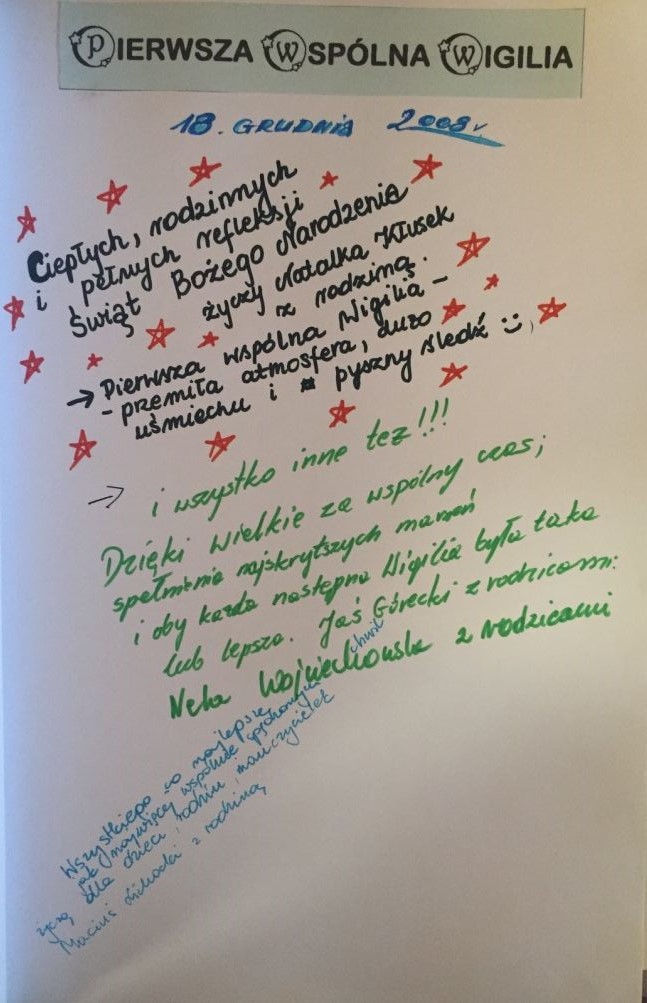 PIERWSZA WSPÓLNA WIGILIA
18. GRUDNIA 2008r.
Ciepłych, rodzinnych
i pełnych refleksji
Świąt Bożego Narodzenia
życzy Natalka Kłusek
z rodziną.
→ Pierwsza wspólna Wigilia -
- przemiła atmosfera, dużo
uśmiechu i pyszny śledź :),
→ i wszystko inne też!!!
Dzięki wielkie za wspólny czas;
spełnienia najskrytszych marzeń
i oby każda następna Wigilia była taka
lub lepsza. Jaś Górecki z rodzicami:
Neha Wojciechowska z rodzicami
Wszystkiego co najlepsze
jak najwięcej wspólnie spędzonych chwil
dla dzieci, rodzin, nauczycieli
życzą
Maciuś z rodziną